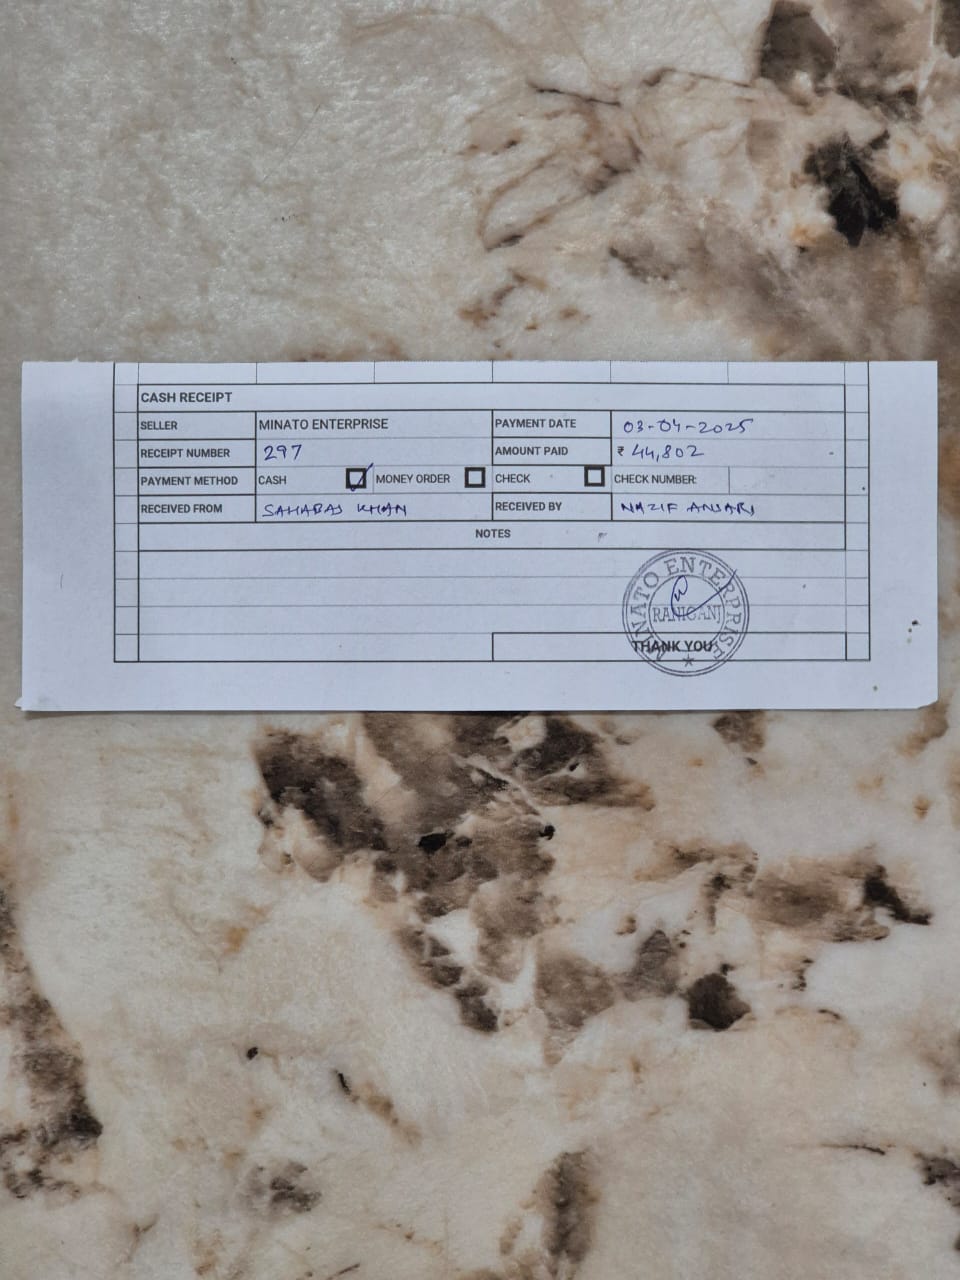 CASH RECEIPT
SELLER MINATO ENTERPRISE PAYMENT DATE 03-04-2025
RECEIPT NUMBER 297 AMOUNT PAID ₹ 44,802
PAYMENT METHOD CASH MONEY ORDER CHECK CHECK NUMBER:
RECEIVED FROM SAHABAJ KHAN RECEIVED BY NAZIF ANSARI
NOTES
MINATO ENTERPRISE
RANIGANJ
THANK YOU